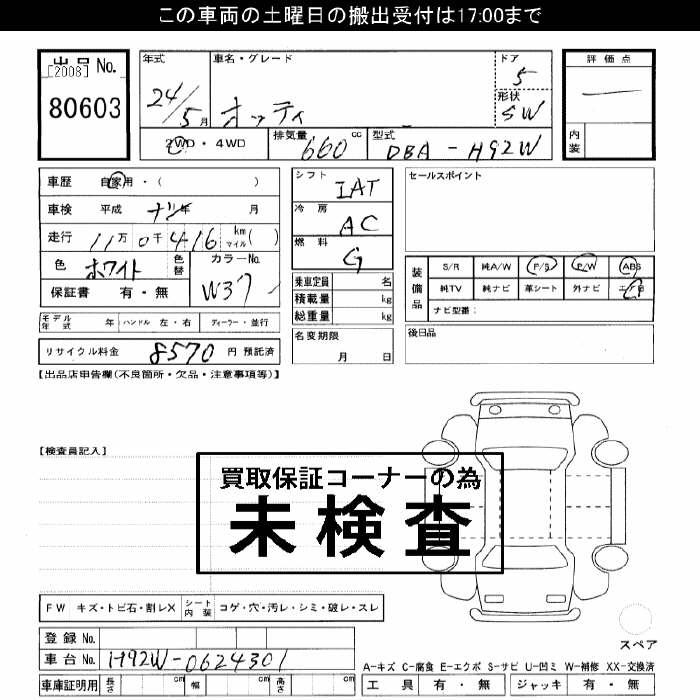 この車両の土曜日の搬出受付は17:00まで
出品 No.
[2008]
80603
年式
24/5月
車名・グレード
オッティ
ドア
5
形状
SW
評価点
内装
2WD・4WD
排気量
660 cc
型式
DBA-H92W
車歴 自家用・( )
車検 平成 ナシ 年 月
走行 11万 0千 416 km マイル ( )
色 ホワイト 色替
カラーNo.
W37
保証書 有・無
モデル年式 年 ハンドル 左・右 ディーラー・並行
リサイクル料金 8570 円 預託済
シフト
IAT
冷房
AC
燃料
G
乗車定員 名
積載量 kg
総重量 kg
名変期限
月 日
セールスポイント
装備品
S/R 純A/W P/S P/W ABS
純TV 純ナビ 革シート 外ナビ
ナビ型番:
後日品
【出品店申告欄(不良箇所・欠品・注意事項等)】
【検査員記入】
買取保証コーナーの為
未検査
FW キズ・トビ石・割レX シート内装 コゲ・穴・汚レ・シミ・破レ・スレ
登録 No.
車台 No. H92W-0624301
車庫証明用 長さ cm 幅 cm 高さ cm
スペア
A-キズ C-腐食 E-エクボ S-サビ U-凹ミ W-補修 XX-交換済
工具 有・無 ジャッキ 有・無